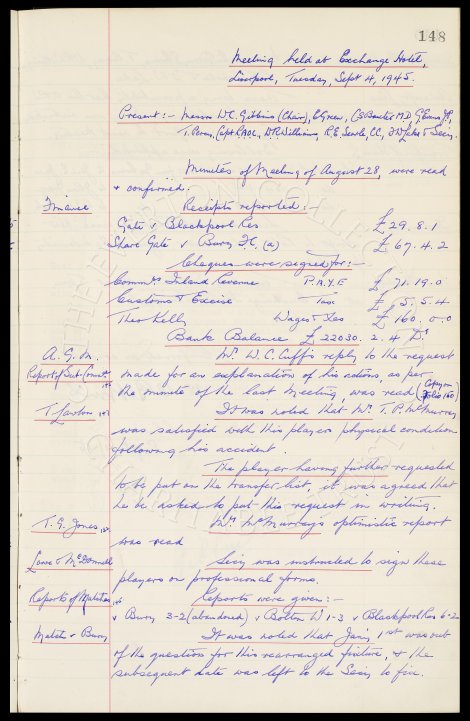 148
Meeting held at Exchange Hotel,
Liverpool, Tuesday, Sept 4, 1945.
Present:- Messrs W.C. Gibbins (Chair), E Green, C S Baxter M.D. G. Evans JP,
T. Percy, R.E. Searle, CC, & Secy.
Minutes of Meeting of August 28, were read
& confirmed.
Finance
Receipts reported:-
Gate v Blackpool Res £29.8.1
Share Gate v Bury FC. (a) £67.4.2
Cheques were signed for:-
Commrs Inland Revenue P.A.Y.E £71.19.0
Customs & Excise Tax £5.5.4
Theo Kelly Wages & Xes £160.0.0
Bank Balance £22030.2.4 Dr
A.G.M.
Report of Sub-Comtee
Mr. W.C. Cuff's reply to the request
made for an explanation of his actions, as per
the minute of the last Meeting, was read (Copy on folio 150)
T. Lawton
It was noted that Mr. T.P. McMurray
was satisfied with this players physical condition
following his accident.
The player having further requested
to be put on the transfer list, it was agreed that
he be asked to put this request in writing.
T.G. Jones
Mr. McMurray's optimistic report
was read
Lowe & McDonnell
Secy was instructed to sign these
players on professional forms.
Reports of Matches
Reports were given:-
v Bury 3-2 (abandoned) v Bolton W 1-3 v Blackpool Res 6-2
Match v Bury
It was noted that Jany 1st was out
of the question for this rearranged fixture, & the
subsequent date was left to the Secy to fix.